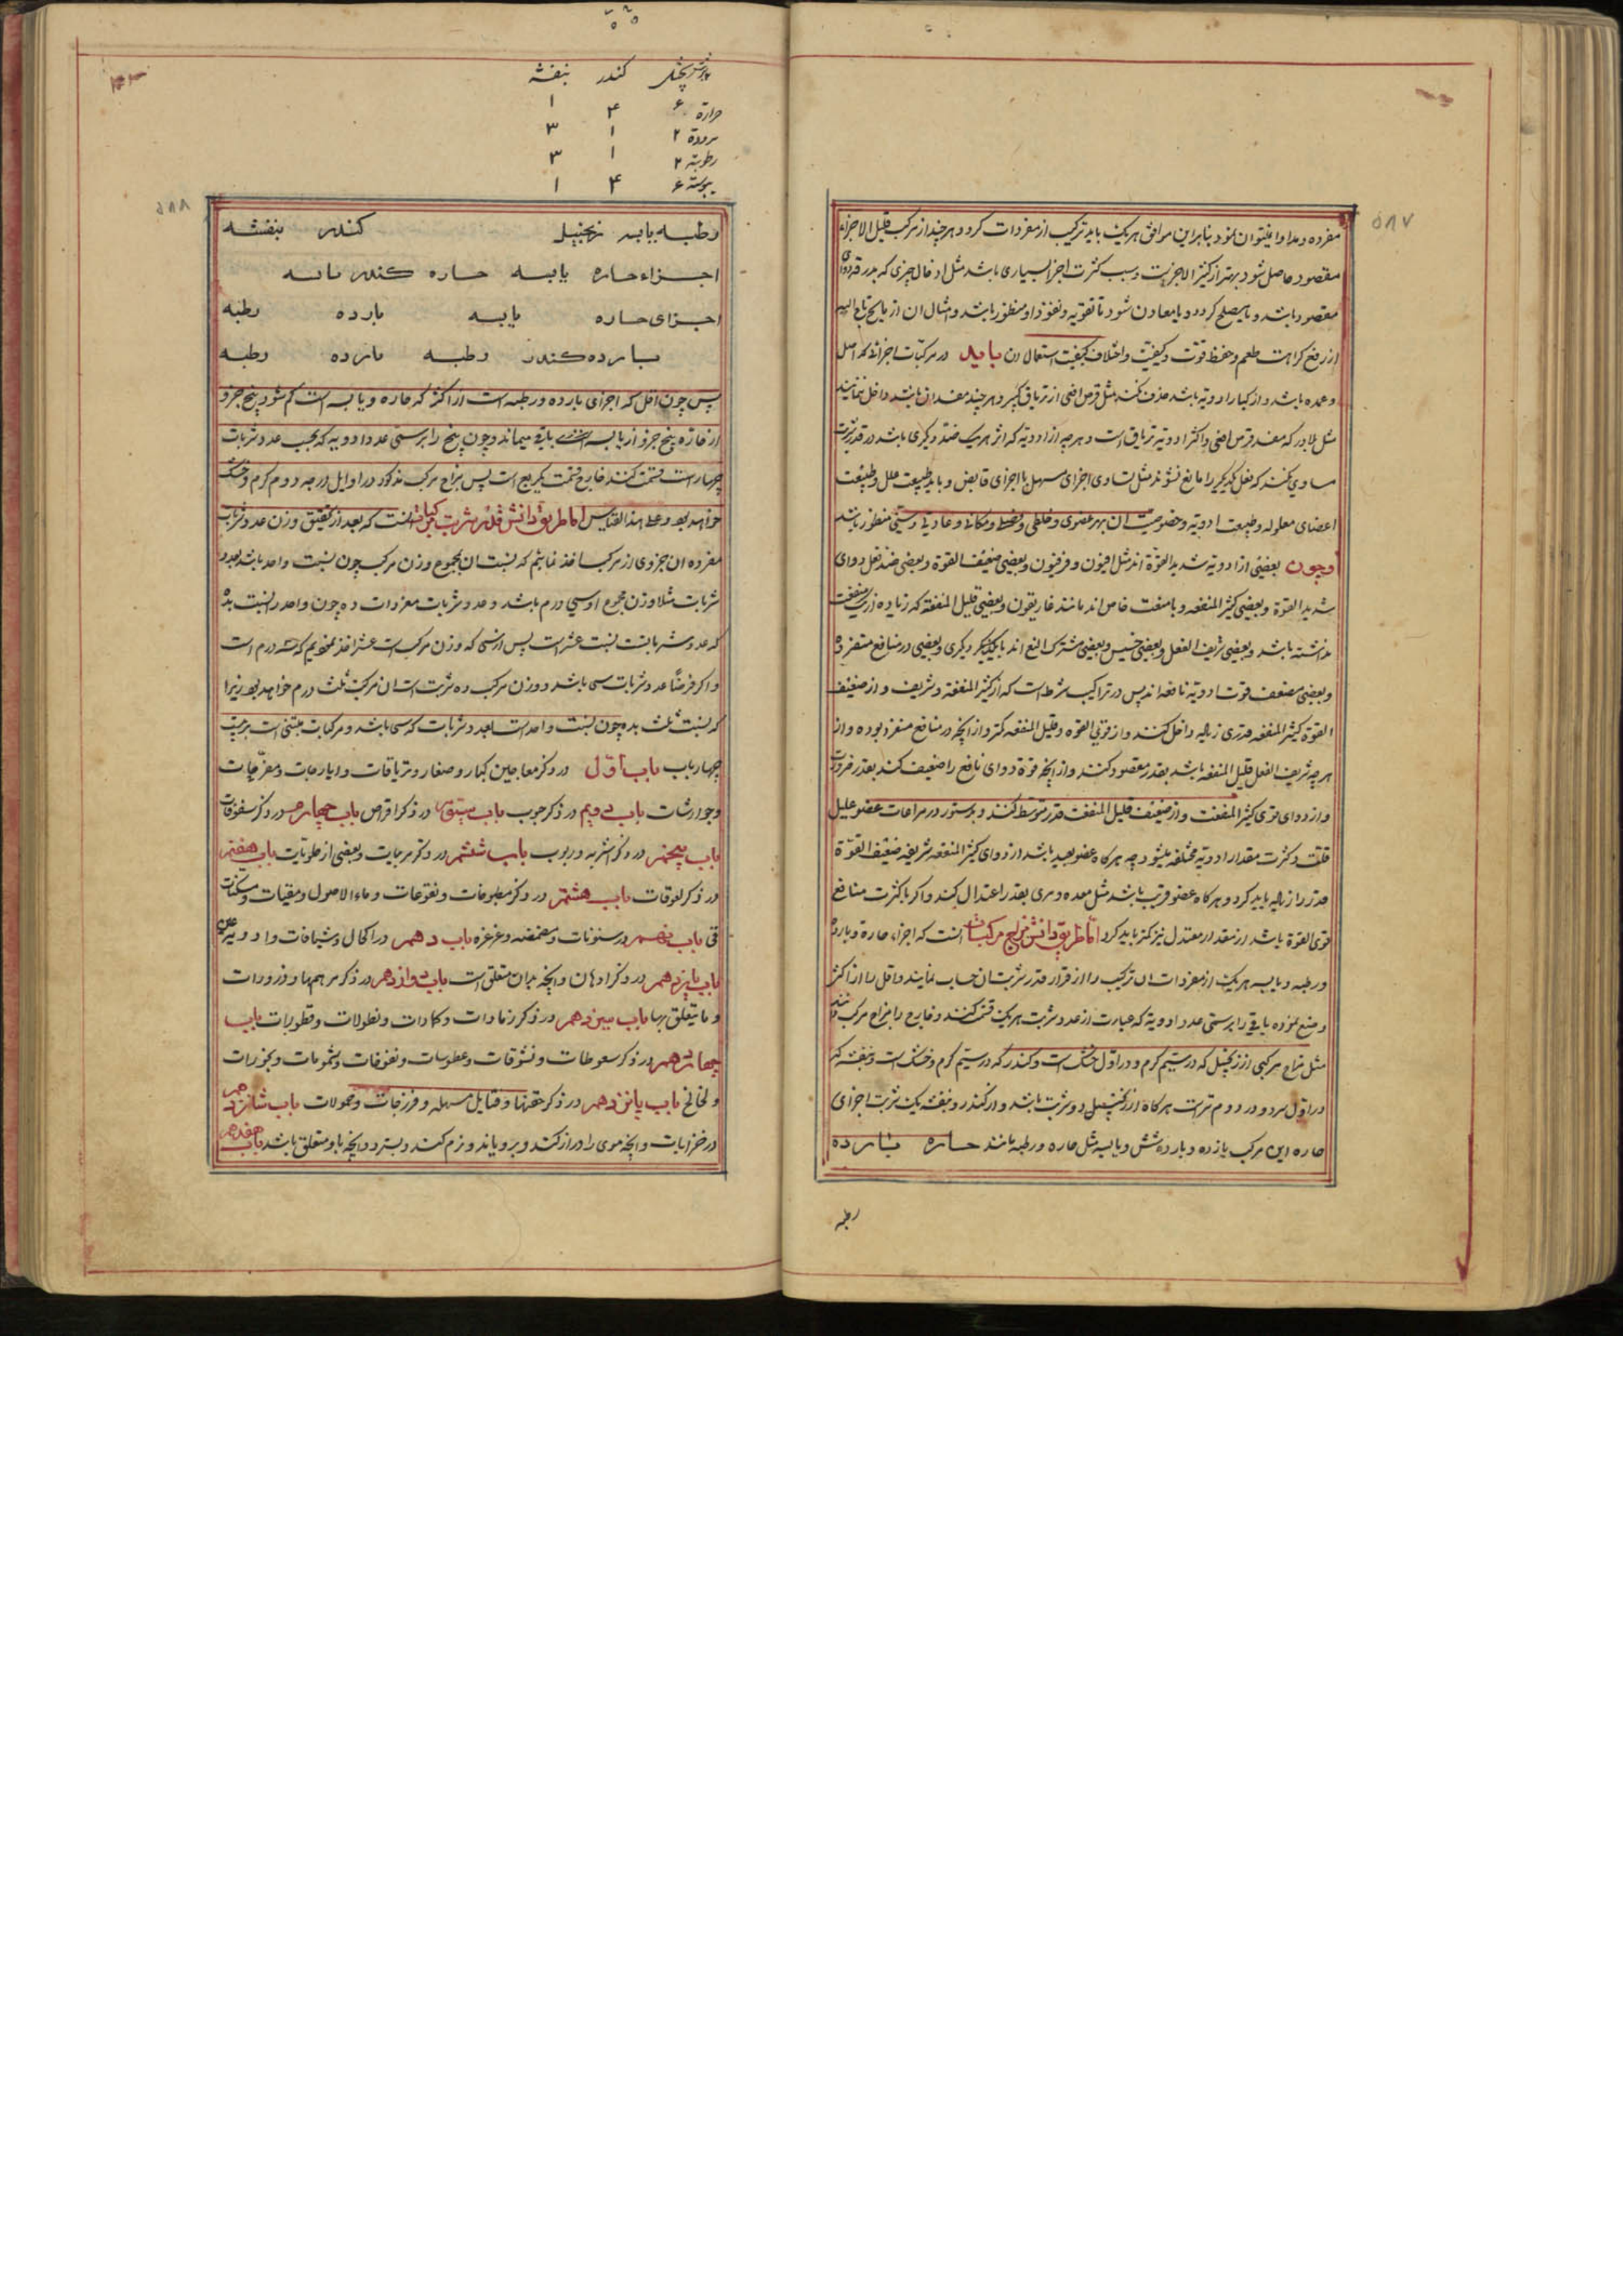 ۵۸۷
مفرده و مداوا نمیتوان نمود بنابراین موافق هریک باید ترکیب از مفردات کرد و هر چند از مرکب قلیل الاجزاء
مقصود حاصل شود بهتر از کثیر الاجزاست و سبب کثرت اجزا بسیاری باشد مثل ادخال چیزی که بدرقه دوای
مقصود باشد و یا مصلح گردد و یا معاون شود تا تقویه و نفوذ او منظور باشد و امثال ان از
از رفع کراهت طعم و حفظ قوت و کیفیت و اختلاف کیفیت استعمال ان باید در مرکبات اجزائیکه اصل
و عمده باشد و از کبار ادویه باشد حذف نکنند مثل قرص افعی از تریاق کبیر و هر چند مفسد ان باشد داخل ننمایند
مثل بلادر که مفسد قرص افعی و اکثر ادویه تریاق است و هرچه از ادویه که اثر هریک ضد دیگری باشد در قدر شربت
مساوی نکنند که فعل یکدیگر را مانع نشوند مثل تساوی اجزای مسهل با اجزای قابض و باید طبیعت علل و طبیعت
اعضای معلوله و طبیعت ادویه و خصوصیت ان بهر عضوی و خلطی و فصلی و مکانی و عادتی و سنی منظور باشد
و چون بعضی از ادویه شدید القوة اند مثل افیون و فرفیون و بعضی ضعیف القوة و بعضی ضد فعل دوای
شدید القوة و بعضی کثیر المنفعه و با منفعت خاص اند مانند غاریقون و بعضی قلیل المنفعه که زیاده از یک منفعت
نداشته باشد و بعضی شریف الفعل و بعضی خسیس و بعضی مشترک النفع اند با یکدیگر دیگری و بعضی در منافع منفرده
و بعضی مضعف قوت ادویه نافعه اند پس در تراکیب شرط است که از کثیر المنفعة و شریف و از ضعیف
القوة کثیر المنفعه قدری زیاده داخل کنند و از قوی القوه و قلیل المنفعه کمتر و از آنچه در منافع منفرد بوده و از
هرچه شریف الفعل قلیل المنفعه باشد بقدر مقصود کنند و از آنچه قوة دوای نافع را ضعیف کند بقدر ضرورت
و از دوای قوی کثیر المنفعت و از ضعیف قلیل المنفعت قدر متوسط کنند و بدستور در مراعات عضو علیل
قلت و کثرت مقدار ادویه مختلفه میشود چه هرگاه عضو بعید باشد از دوای کثیر المنفعه شریفه ضعیف القوة
قدر را زیاده باید کرد و هرگاه عضو قریب باشد مثل معده و مری بقدر اعتدال کند و اگر با کثرت منافع
قوی القوة باشد از مقدار معتدل نیز کمتر باید کرد اما طریق دانش مزاج مرکبات انست که اجزاء حاره و بارده
و رطبه و یابسه هریک از مفردات ان ترکیب را از قرار قدر شربت ان حساب نمایند و اقل را از اکثر
وضع نموده باقی را بر ستی عدد ادویه که عبارت از عدد شربت هریک قسمت کنند و خارج را مزاج مرکب دانند
مثل مزاج مرکبی از زنجبیل که در سیم گرم و در اول خشک است و کندر که در سیم گرم و خشک است و بنفشه که
در اول سرد و در دوم تر است هرگاه از زنجبیل دو شربت باشد و از کندر و بنفشه یک شربت اجزای
حاره این مرکب یازده و بارده شش و یابسه مثل حاره و رطبه مانند حاره بارده
رطبه
زنجبیل کندر بنفشه
حرارة ۶ ۴ ۱
برودة ۲ ۱ ۳
رطوبة ۲ ۱ ۳
یبوسة ۶ ۴ ۱
۵۸۸
رطبه یابسه زنجبیل کندر بنفشه
اجزاء حاره یابسه حاره کندر یابسه
اجزای حاره یابسه بارده رطبه
بارده کندر رطبه بارده رطبه
پس چون اقل که اجزای بارده و رطبه است از اکثر که حاره و یابسه است کم شود پنج جزو
از حاره پنج جزو از یابسه باقی میماند و چون پنج را بر ستی عدد ادویه که بحسب عدد شربات
چهار است قسمت کنند خارج قسمت یکربع است پس مزاج مرکب مذکور در اوایل درجه دوم گرم و خشک
خواهد بود و علی هذا القیاس اما طریق دانش قدر شربت مرکبات انست که بعد از تحقیق وزن عدد شربات
مفرده ان جزوی از مرکب اخذ نمایم که نسبت ان بمجموع وزن مرکب چون نسبت واحد باشد بعدد
شربات مثلا وزن مجموع او سی درم باشد و عدد شربات مفردات ده چون واحد را نسبت بده
که عدد شرباتست نسبت عشر است پس از سی که وزن مرکب است عشر اخذ نمودیم که سه درم است
و اگر فرضاً عدد شربات سی باشد و وزن مرکب ده شربت ان مرکب ثلث درم خواهد بود زیرا
که نسبت ثلث بده چون نسبت واحد است بعدد شربات که سی باشد و مرکبات مبتنی است بر بیست
چهار باب باب اول در ذکر معاجین کبار و صغار و تریاقات و ایارجات و مفرحات
و جوارشات باب دویم در ذکر حبوب باب سیوم در ذکر اقراص باب چهارم در ذکر سفوفات
باب پنجم در ذکر اشربه و ربوب باب ششم در ذکر مربیات و بعضی از حلویات باب هفتم
در ذکر لعوقات باب هشتم در ذکر مطبوخات و نقوعات و ماء الاصول و مقیات و مسکنات
قی باب نهم در سنونات و مضمضه و غرغره باب دهم در اکحال و شیافات و ادویه عین
باب یازدهم در ذکر ادهان و آنچه بدان متعلق است باب دوازدهم در ذکر مرهمها و ذرورات
و ما یتعلق بها باب سیزدهم در ذکر ضمادات و کمادات و نطولات و قطورات باب
چهاردهم در ذکر سعوطات و نشوقات و عطوسات و نفوخات و شمومات و بخورات
و لخالخ باب پانزدهم در ذکر حقنها و فتایل مسهله و فرزجات و حمولات باب شانزدهم
در خضابات و آنچه موی را دراز کند و برویاند و نرم کند و بسترد و آنچه باو متعلق باشد باب هفدهم